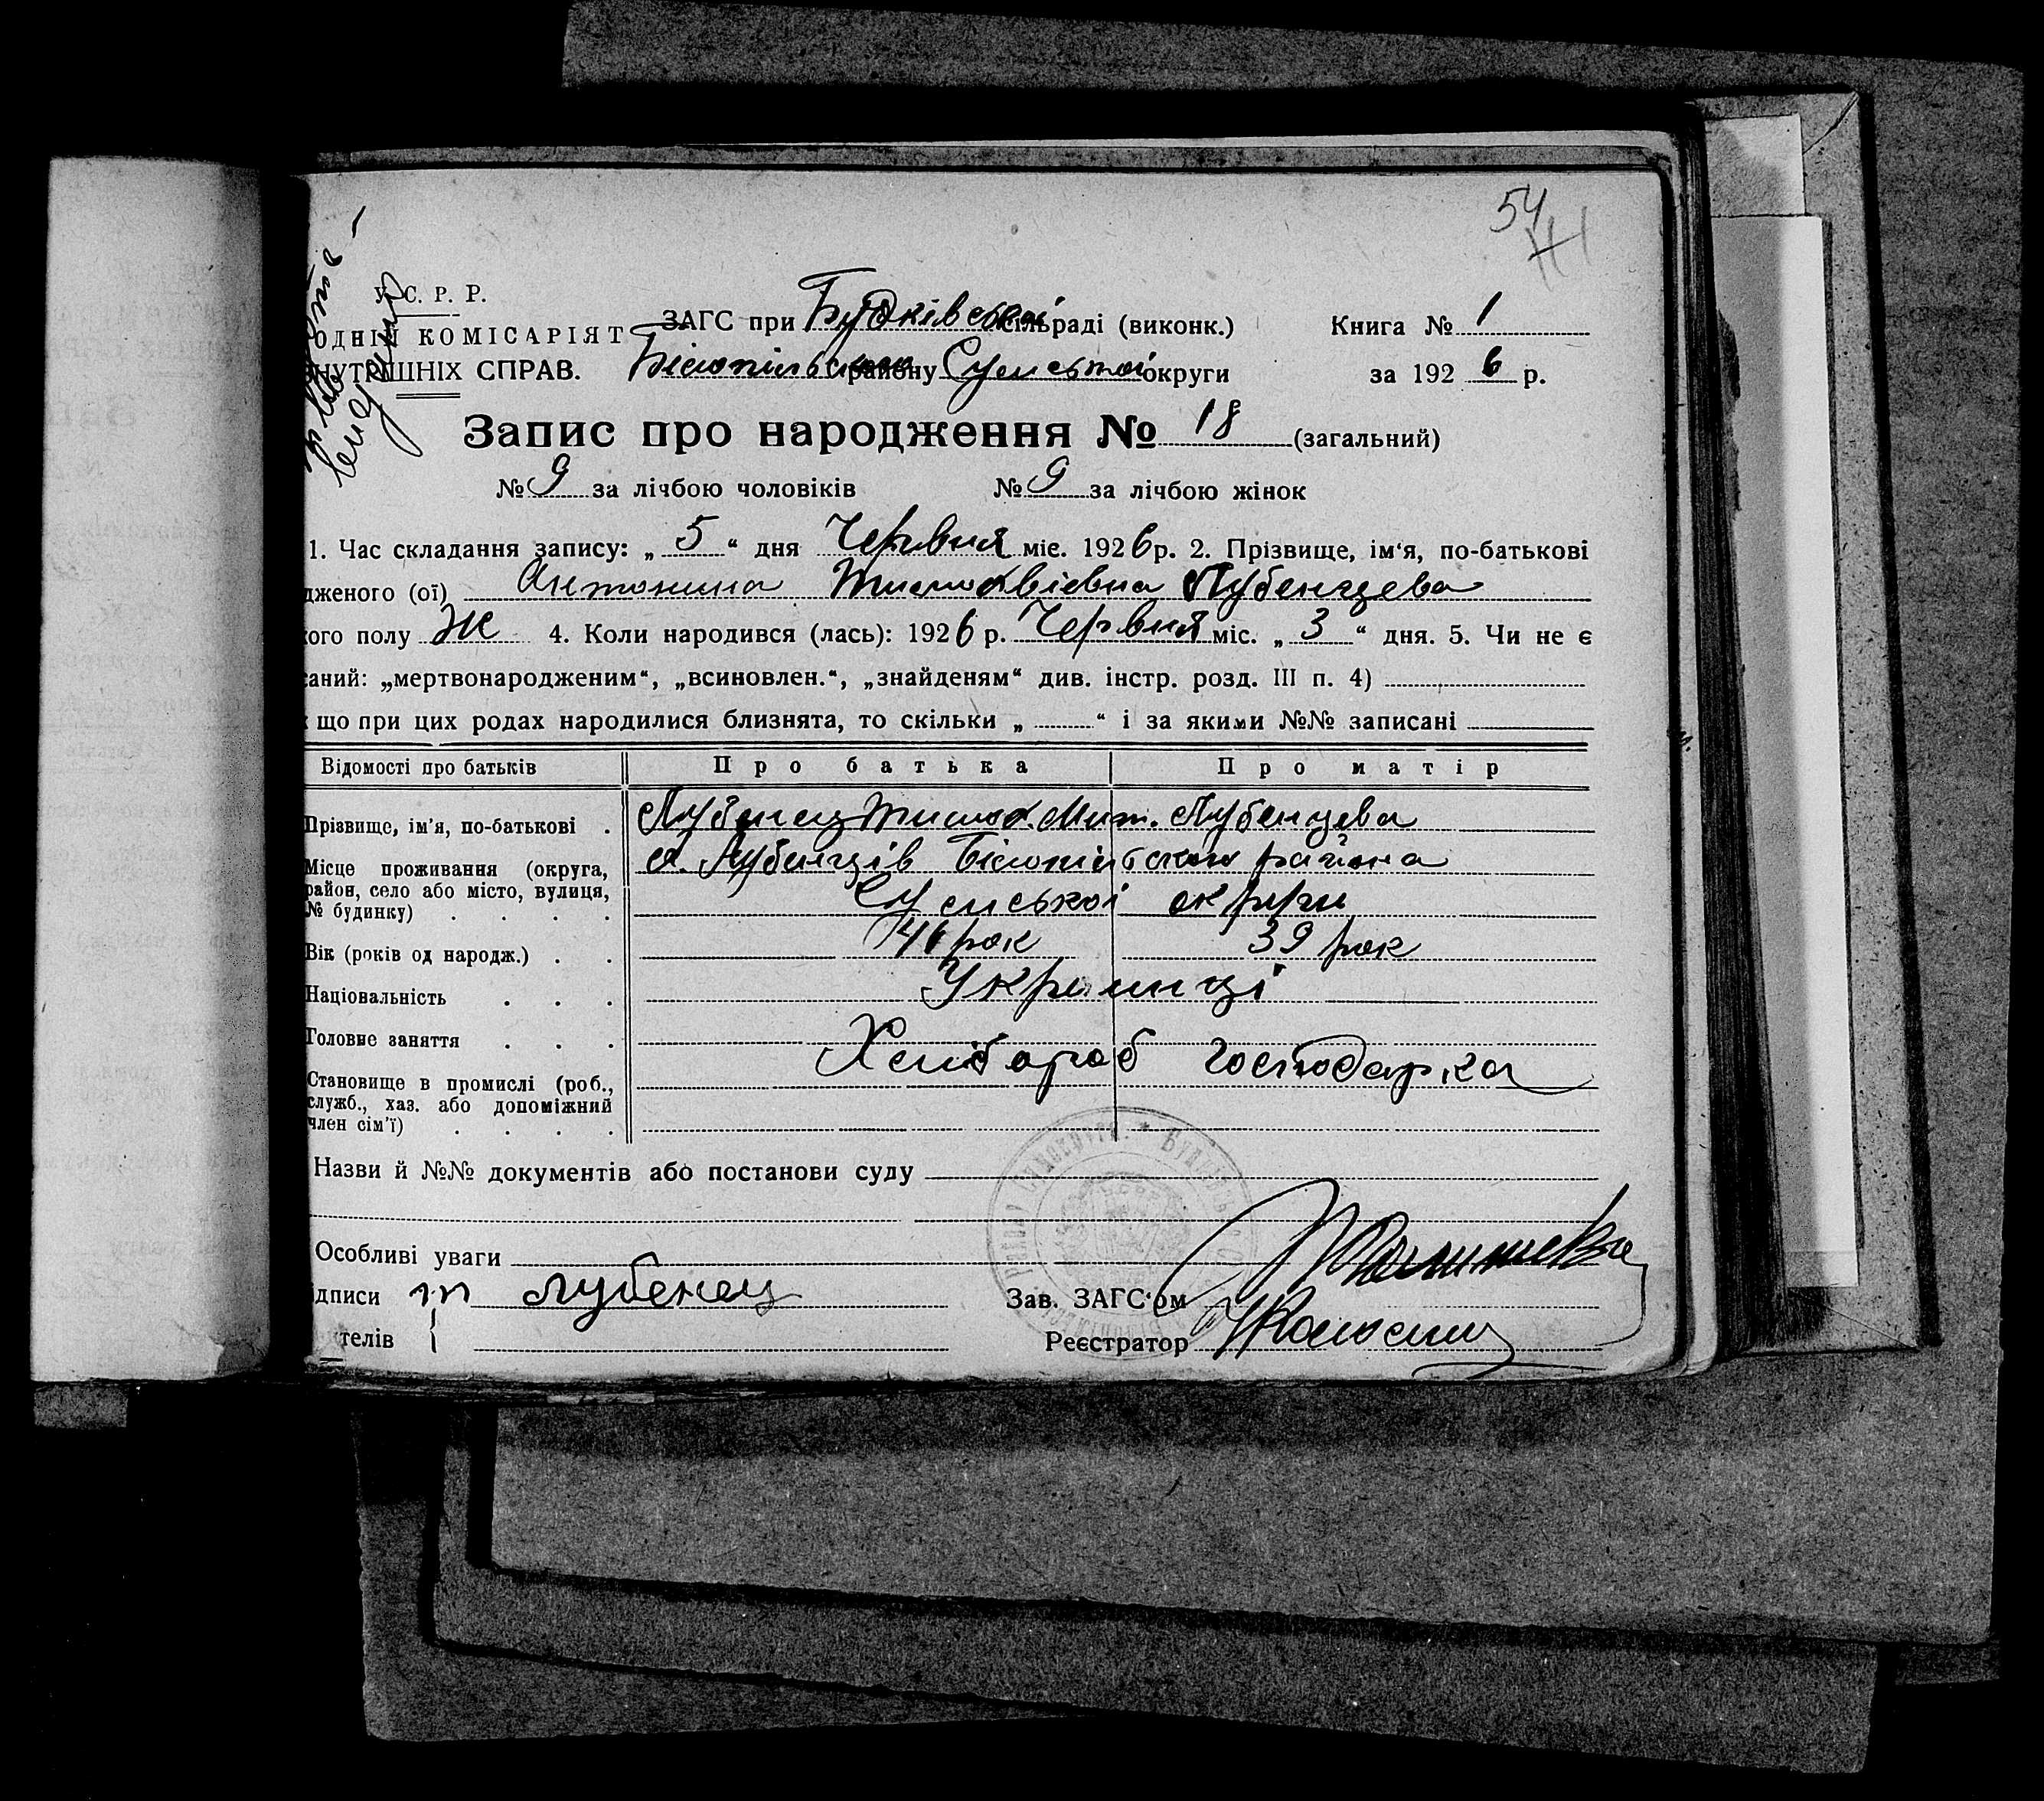 54
У. С. Р. Р.
ОДНІЙ КОМІСАРІЯТ
НУТРЕШНІХ СПРАВ.
ЗАГС при Будківській сільраді (виконк.)
Книга № 1
Білопільського району Сумської округи
за 1926 р.
Запис про народження № 18 (загальний)
№ 9 за лічбою чоловіків № 9 за лічбою жінок
1. Час складання запису: „ 5 “ дня Червня міс. 1926 р. 2. Прізвище, ім‘я, по-батькові
дженого (ої) Антонина Тимофвіевна Лубенцева
кого полу Ж 4. Коли народився (лась): 1926 р. Червня міс. „ 3 “ дня. 5. Чи не є
саний: „мертвонародженим“, „всиновлен.“, „знайденям“ див. інстр. розд. III п. 4)
що при цих родах народилися близнята, то скільки „ “ і за якими №№ записані
Відомості про батьків Про батька Про матір
Прізвище, ім‘я, по-батькові . Лубенец Тимоф. Мит. Лубенцева
Місце проживання (округа, район, село або місто, вулиця, № будинку) . . . . х. Лубенців Білопільского района
Сумської округи
Вік (років од народж.) . . 41 рок 39 рок
Національність . . . Украинці
Головне заняття . . .
Хлібороб господарка
Становище в промислі (роб., служб., хаз. або допоміжний член сім‘ї) . . . .
Назви й №№ документів або постанови суду
Особливі уваги
дписи т лубенец
Зав. ЗАГС‘ом
телів
Реєстратор